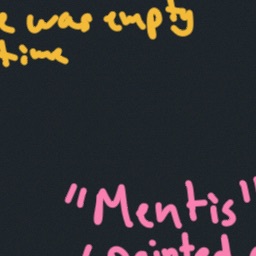 was empty
time
"Mentis"
painted